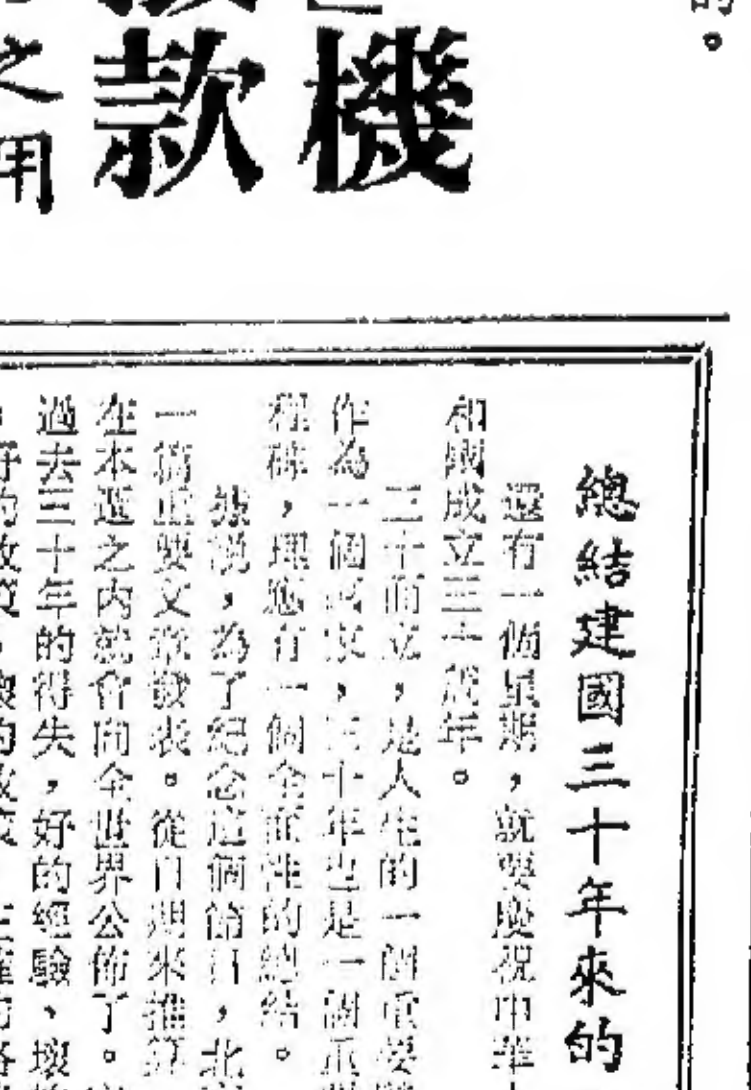 的。
機
款
之
用
總結建國三十年來的
還有一個星期，就要慶祝中華
和國成立三十周年。
三十而立，是人生的一個重要
作為一個國家，三十年也是一個重要
程碑，理應有一個全面性的總結。
據說，為了紀念這個節日，北
一篇重要文章發表。從日期來推算
在本週之內就會向全世界公佈了。
過去三十年的得失，好的經驗、壞